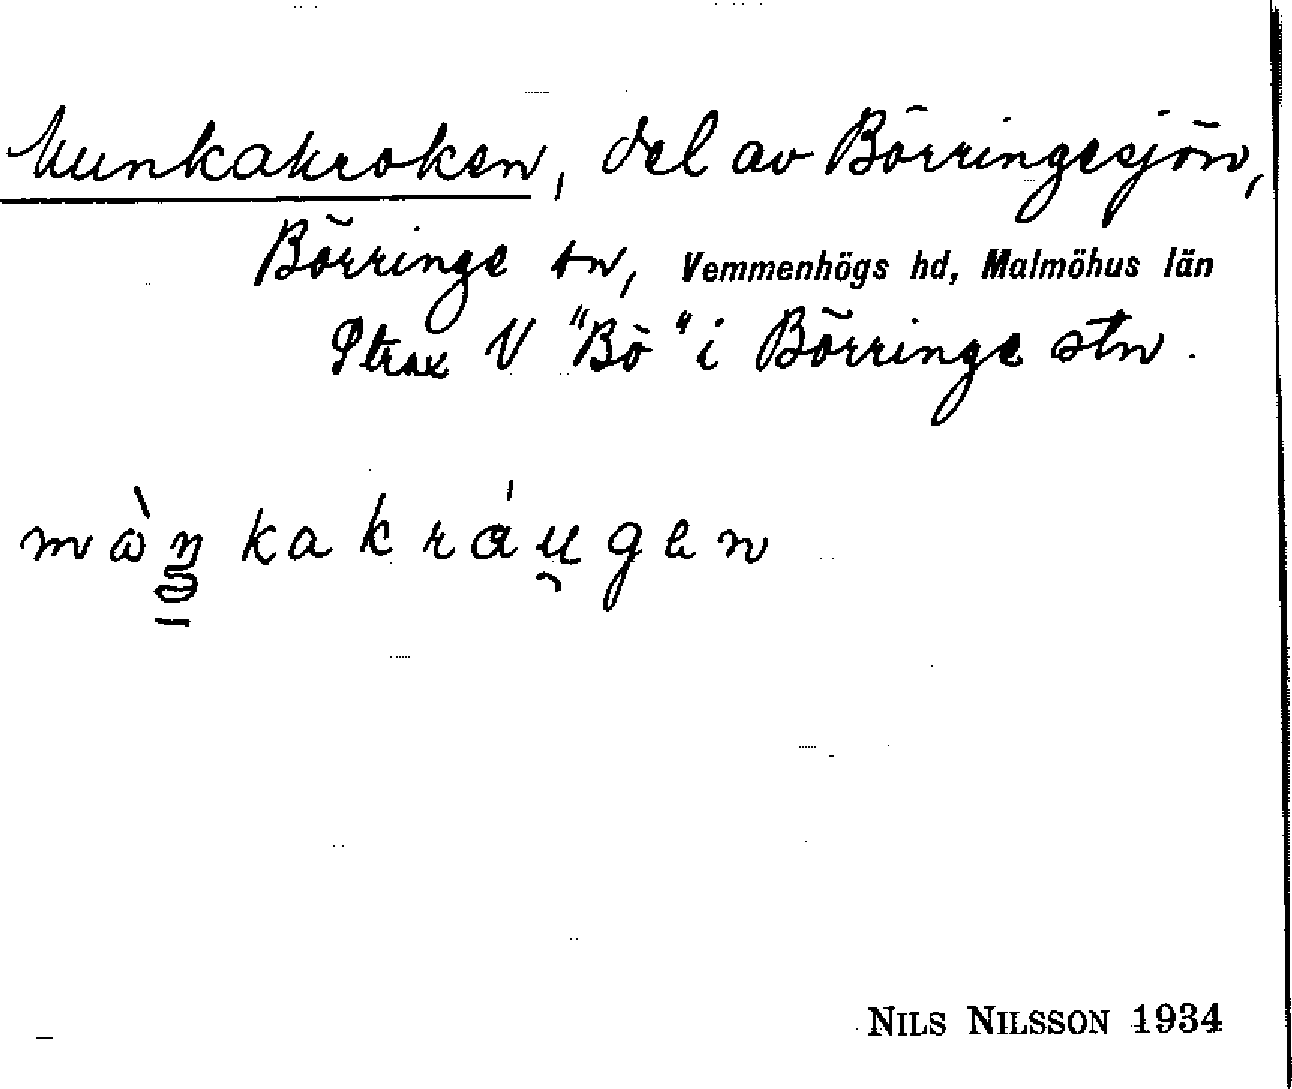 Munkakroken, del av Börringesjön,
Börringe sn, Vemmenhögs hd, Malmöhus län
Strax V "Bö" i Börringe stn.
mὼŋkakráu̯gen
NILS NILSSON 1934